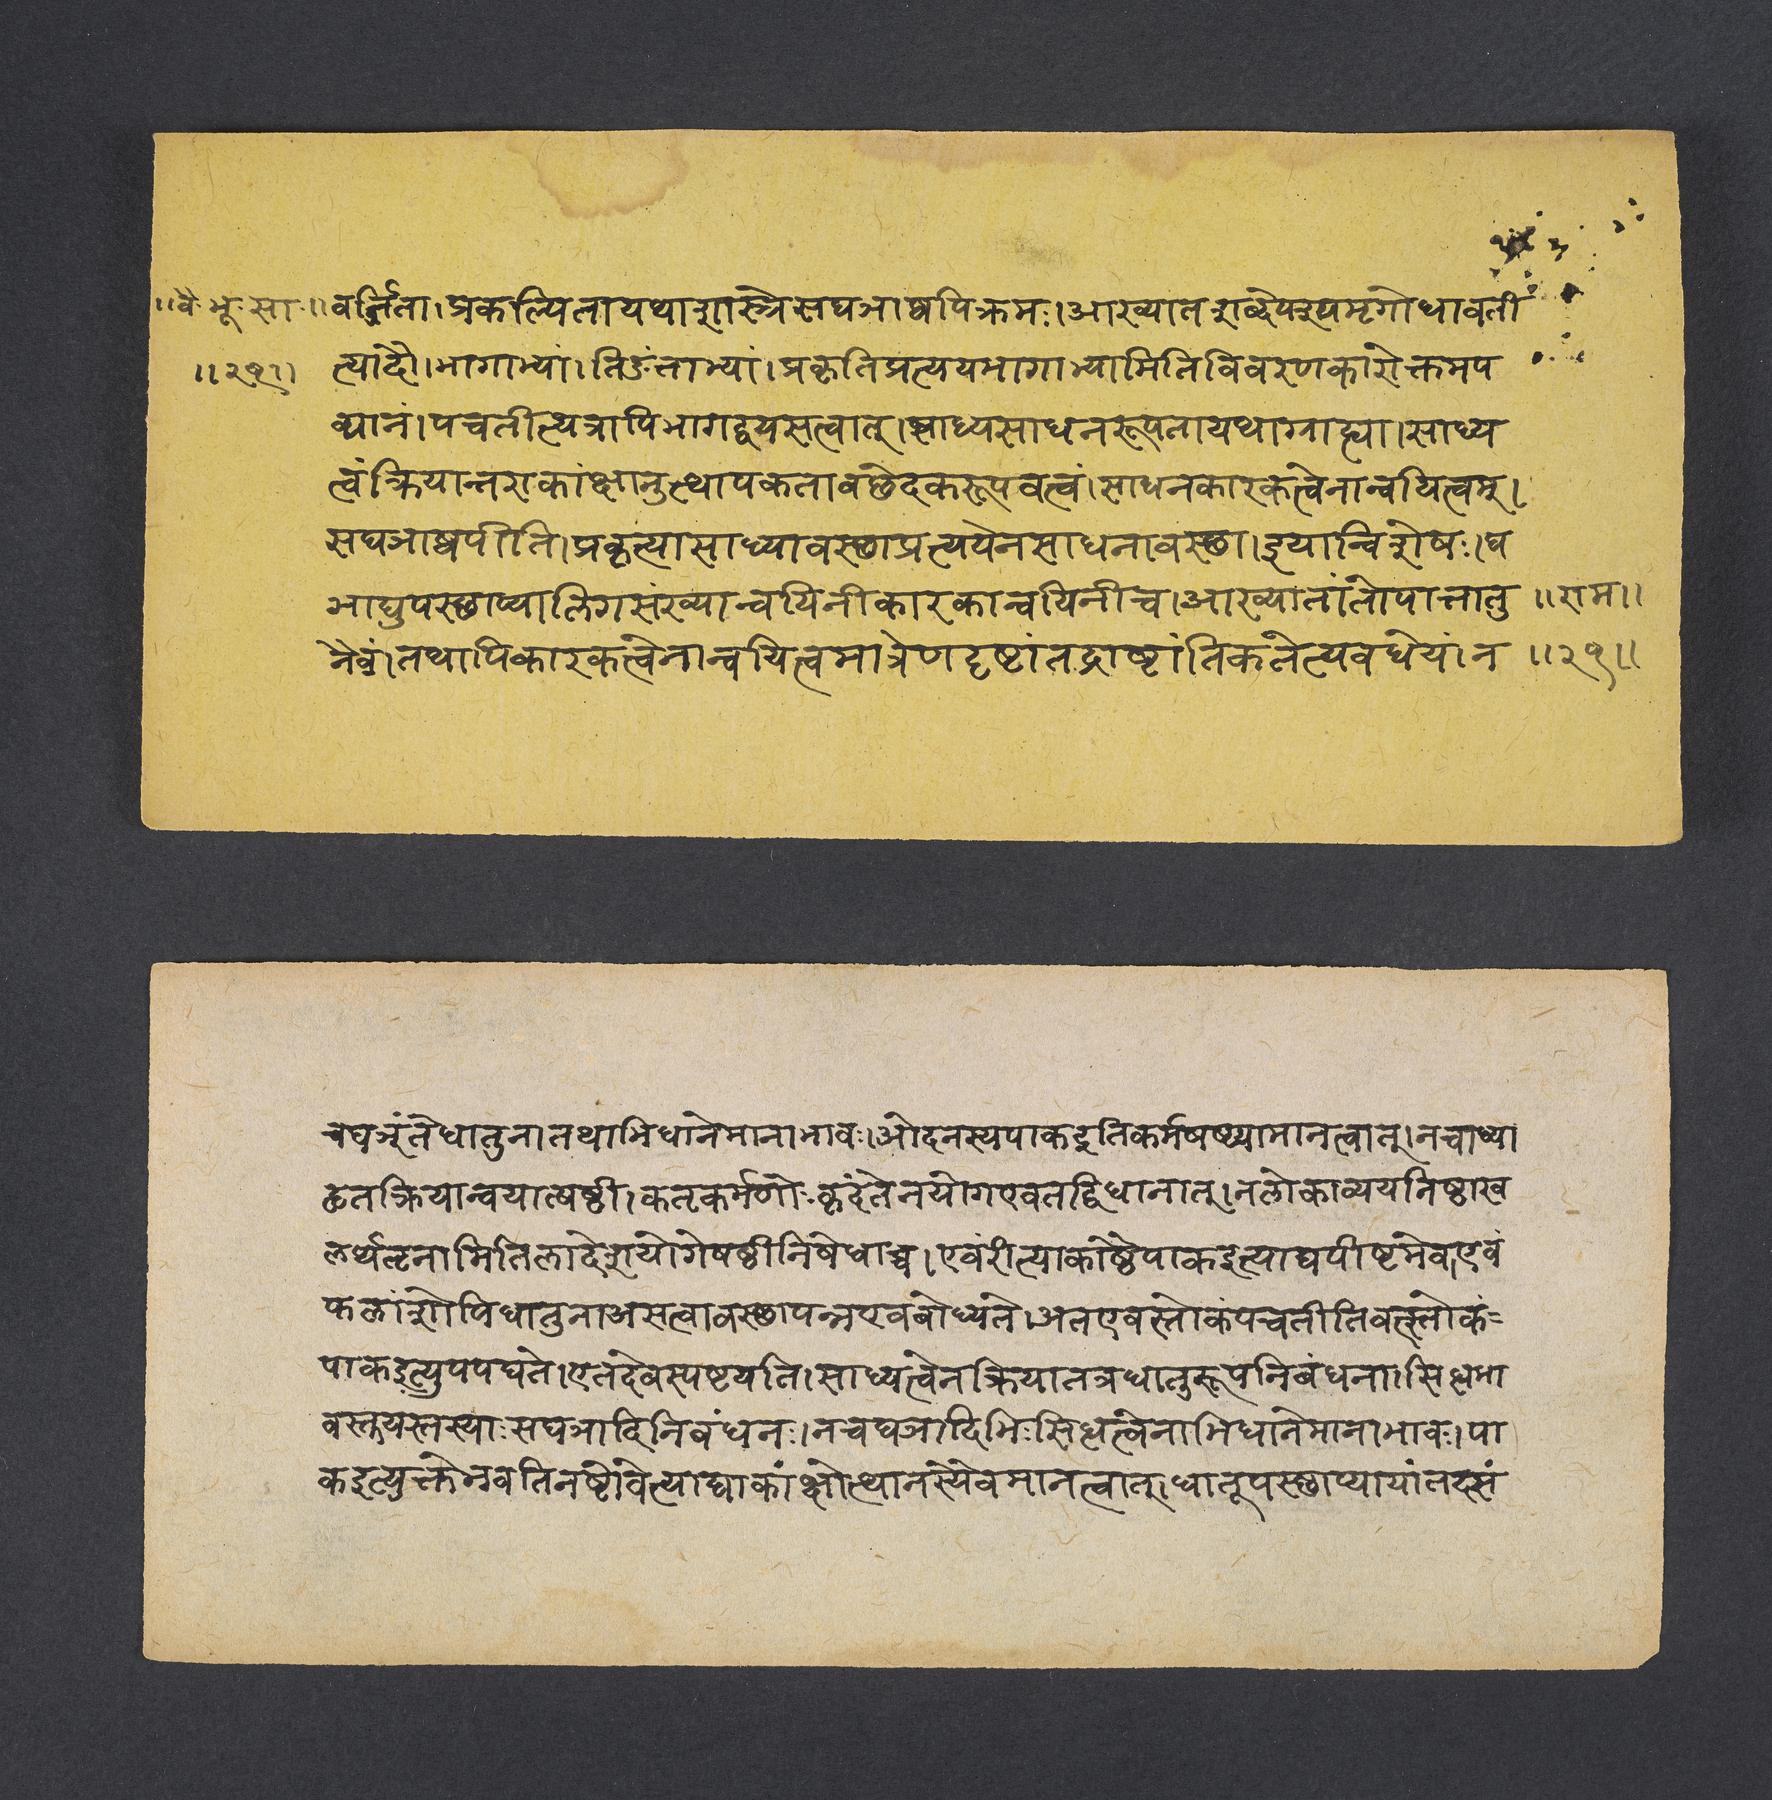 ॥वै॰भू॰सा॰॥ वर्त्तिता।प्रकल्पितायथाशास्त्रेसघञाद्यपिक्रमः।आख्यातशब्देपश्यमृगोधावती
॥२१॥ त्यादौ।भागाभ्यां।तिङंताभ्यां।प्रकृतिप्रत्ययभागाभ्यामितिविवरणकारोक्तमप
व्यानं।पचतीत्यत्रापिभागद्वयसत्वात्।साध्यसाधनरूपतायथाग्राह्या।साध्य
त्वंक्रियान्तराकांक्षानुत्थापकतावछेदकरूपवत्वं।साधनकारकत्वेनान्वयित्वम्।
सघञाद्यपीति।प्रकृत्यासाध्यावस्छाप्रत्ययेनसाधनावस्छा।इयान्विशेषः।घ
ञाद्युपस्छाप्यालिंगसंख्यान्वयिनीकारकान्वयिनीच।आख्यातांतोपात्तातु ॥राम॥
नैवं।तथापिकारकत्वेनान्वयित्वमात्रेणदृष्टांतदार्ष्टांतिकतेत्यवधेयं।न ॥२१॥
चघञंतेधातुनातथाभिधानेमानाभावः।ओदनस्यपाकइतिकर्मषष्ठ्यामानत्वात्।नचाध्या
हृतक्रियान्वयात्षष्ठी।कर्तृकर्मणोःकृदंतेनयोगएवतद्विधानात्।नलोकाव्ययनिष्ठाख
लर्थतृनामितिलादेशयोगेषष्ठीनिषेधाच्च।एवंरीत्याकाष्ठैपाकइत्याद्यपीष्टमेव।एवं
फलांशोपिधातुनाअसत्वावस्छापन्नएवबोध्यते।अतएवस्तोकंपचतीतिवत्स्तोकं
पाकइत्युपपद्यते।एतदेवस्पष्टयति।साध्यत्वेनक्रियातत्रधातुरूपनिबंधना।सिद्धभा
वस्तुयस्तस्याःसघञादिनिबंधनः।नचघञादिभिःसिद्धत्वेनाभिधानेमानाभावः।पा
कइत्युक्तेभवतिनष्टोवेत्याद्याकांक्षोत्थानस्यैवमानत्वात्।धातूपस्छाप्यायांतदसं